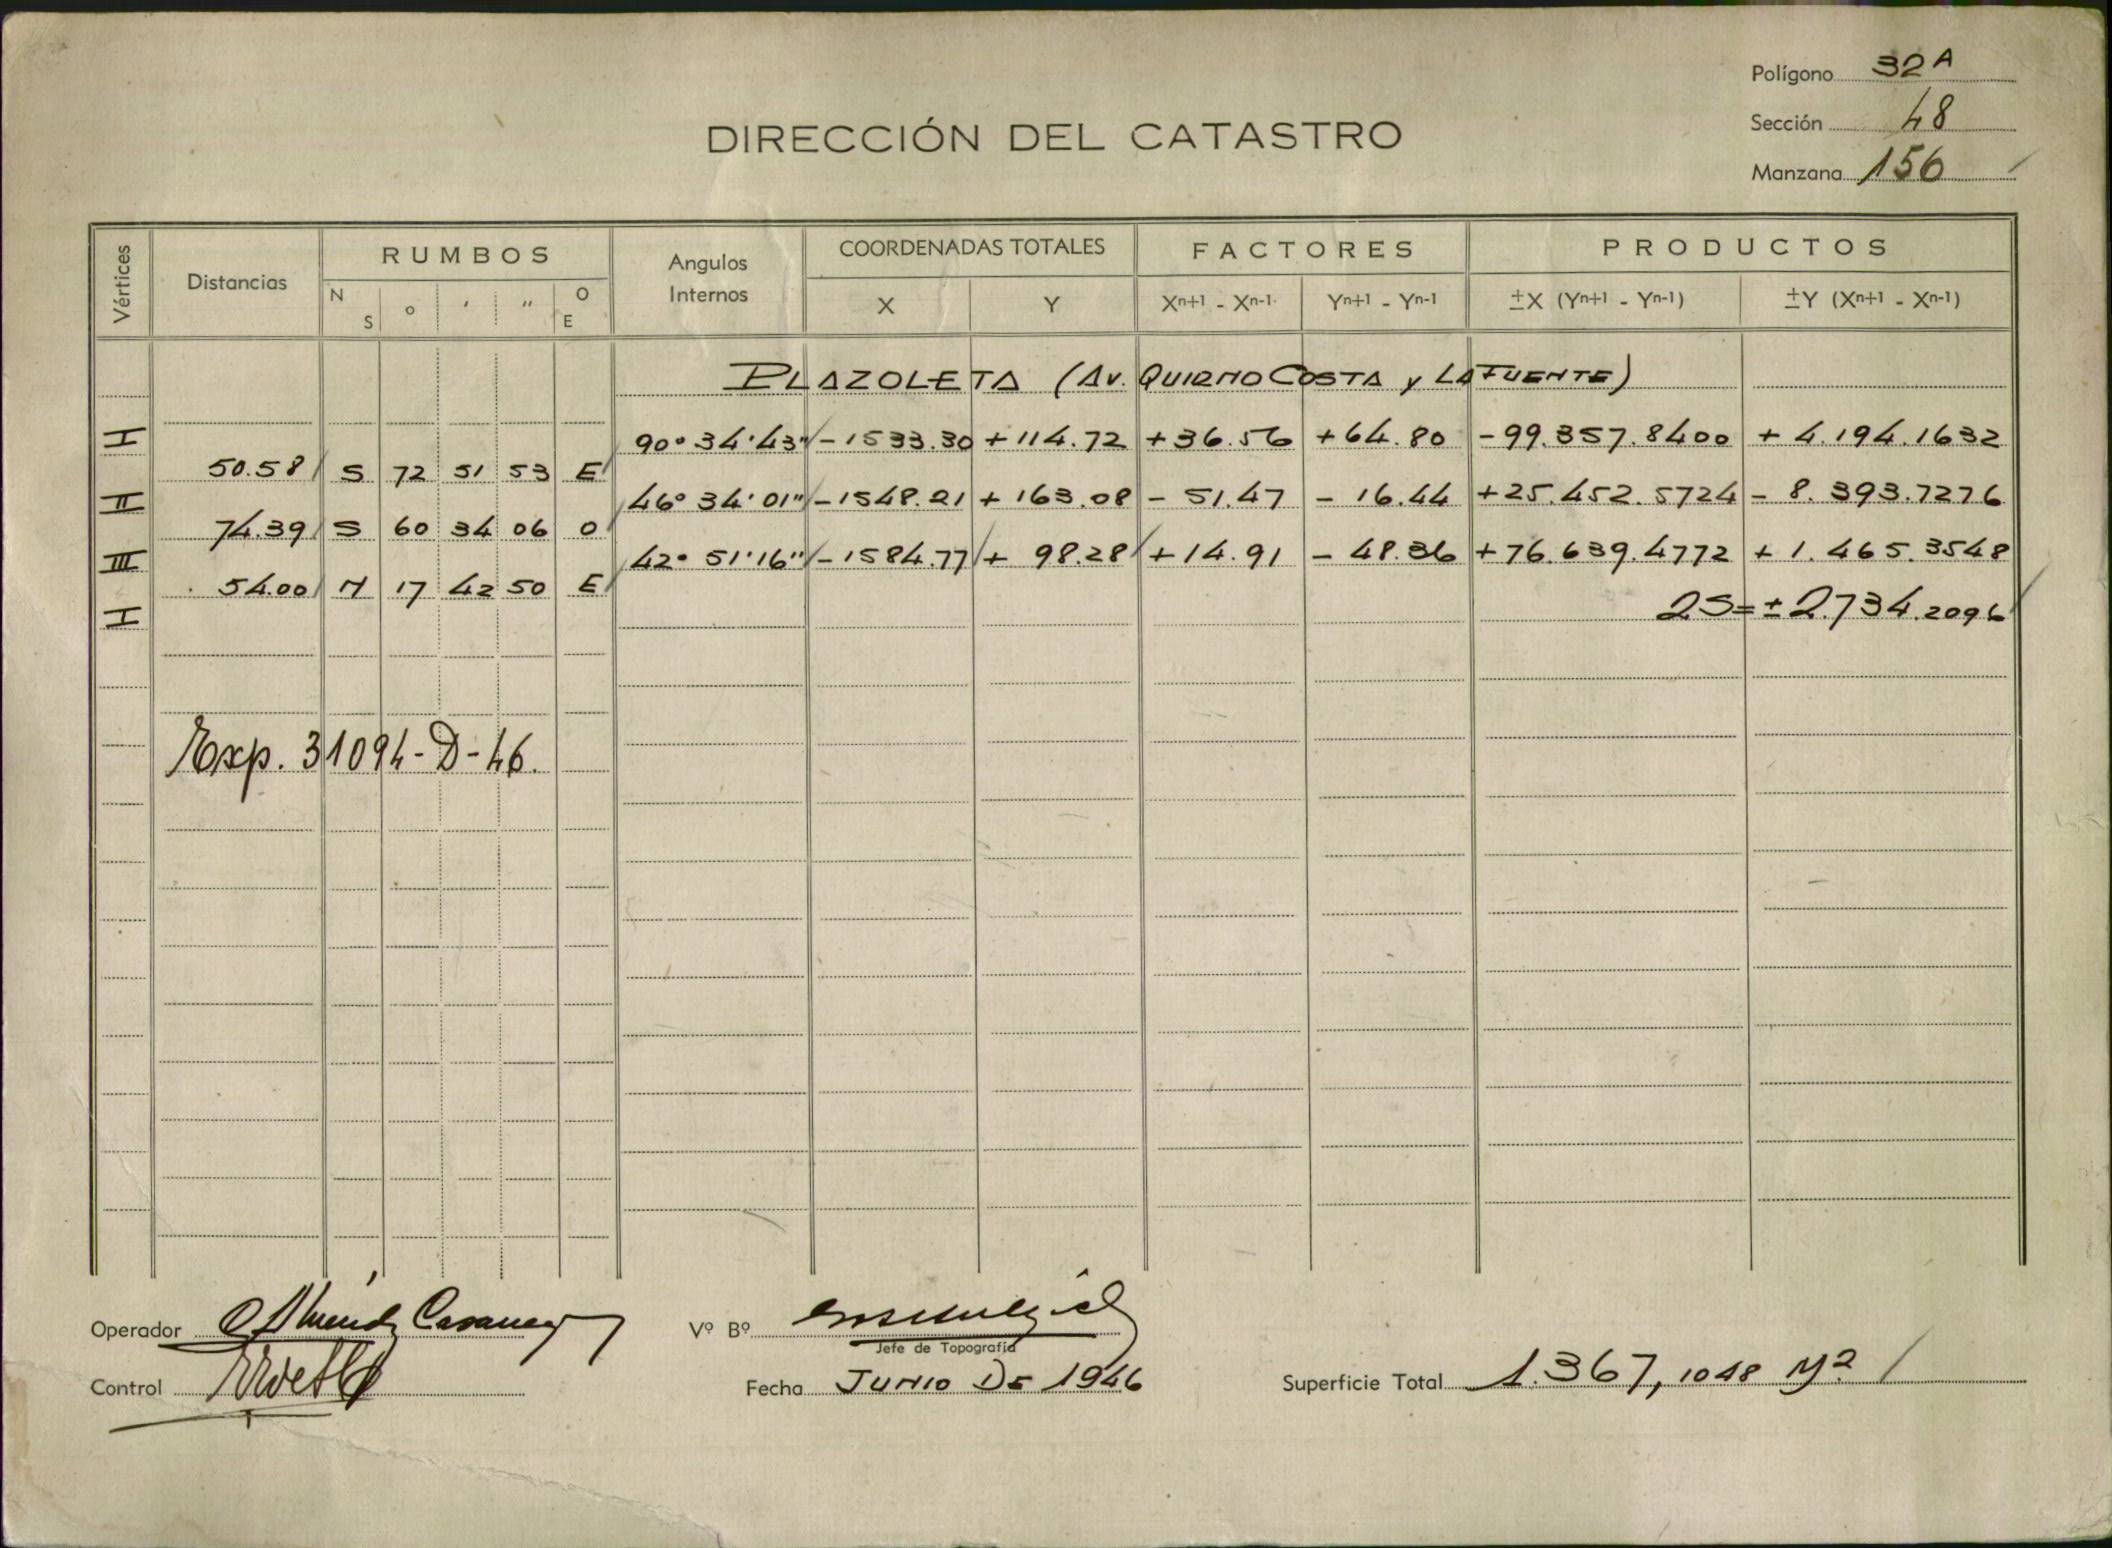 Polígono 32A
Sección 48
Manzana 156
DIRECCIÓN DEL CATASTRO
Vértices Distancias RUMBOS Angulos Internos COORDENADAS TOTALES FACTORES PRODUCTOS
N S ° ' " O E X Y Xn+1 - Xn-1 Yn+1 - Yn-1 ±X (Yn+1 - Yn-1) ±Y (Xn+1 - Xn-1)
PLAZOLETA (AV. QUIRNO COSTA y LAFUENTE)
I 90° 34' 43" -1533.30 +114.72 +36.56 +64.80 -99.357.8400 + 4.194.1632
50.58 S 72 51 53 E
II 46° 34' 01" -1548.21 + 163.08 - 51.47 - 16.44 +25.452.5724 - 8.393.7276
74.39 S 60 34 06 O
III 42° 51' 16" -1584.77 + 98.28 +14.91 - 48.36 +76.639.4772 + 1.465.3548
54.00 N 17 42 50 E
I 2S=±2.734.2096
Exp. 31094-D-46.
Operador
Vº Bº
Jefe de Topografía
Control
Fecha JUNIO DE 1946
Superficie Total 1.367,1048 M2